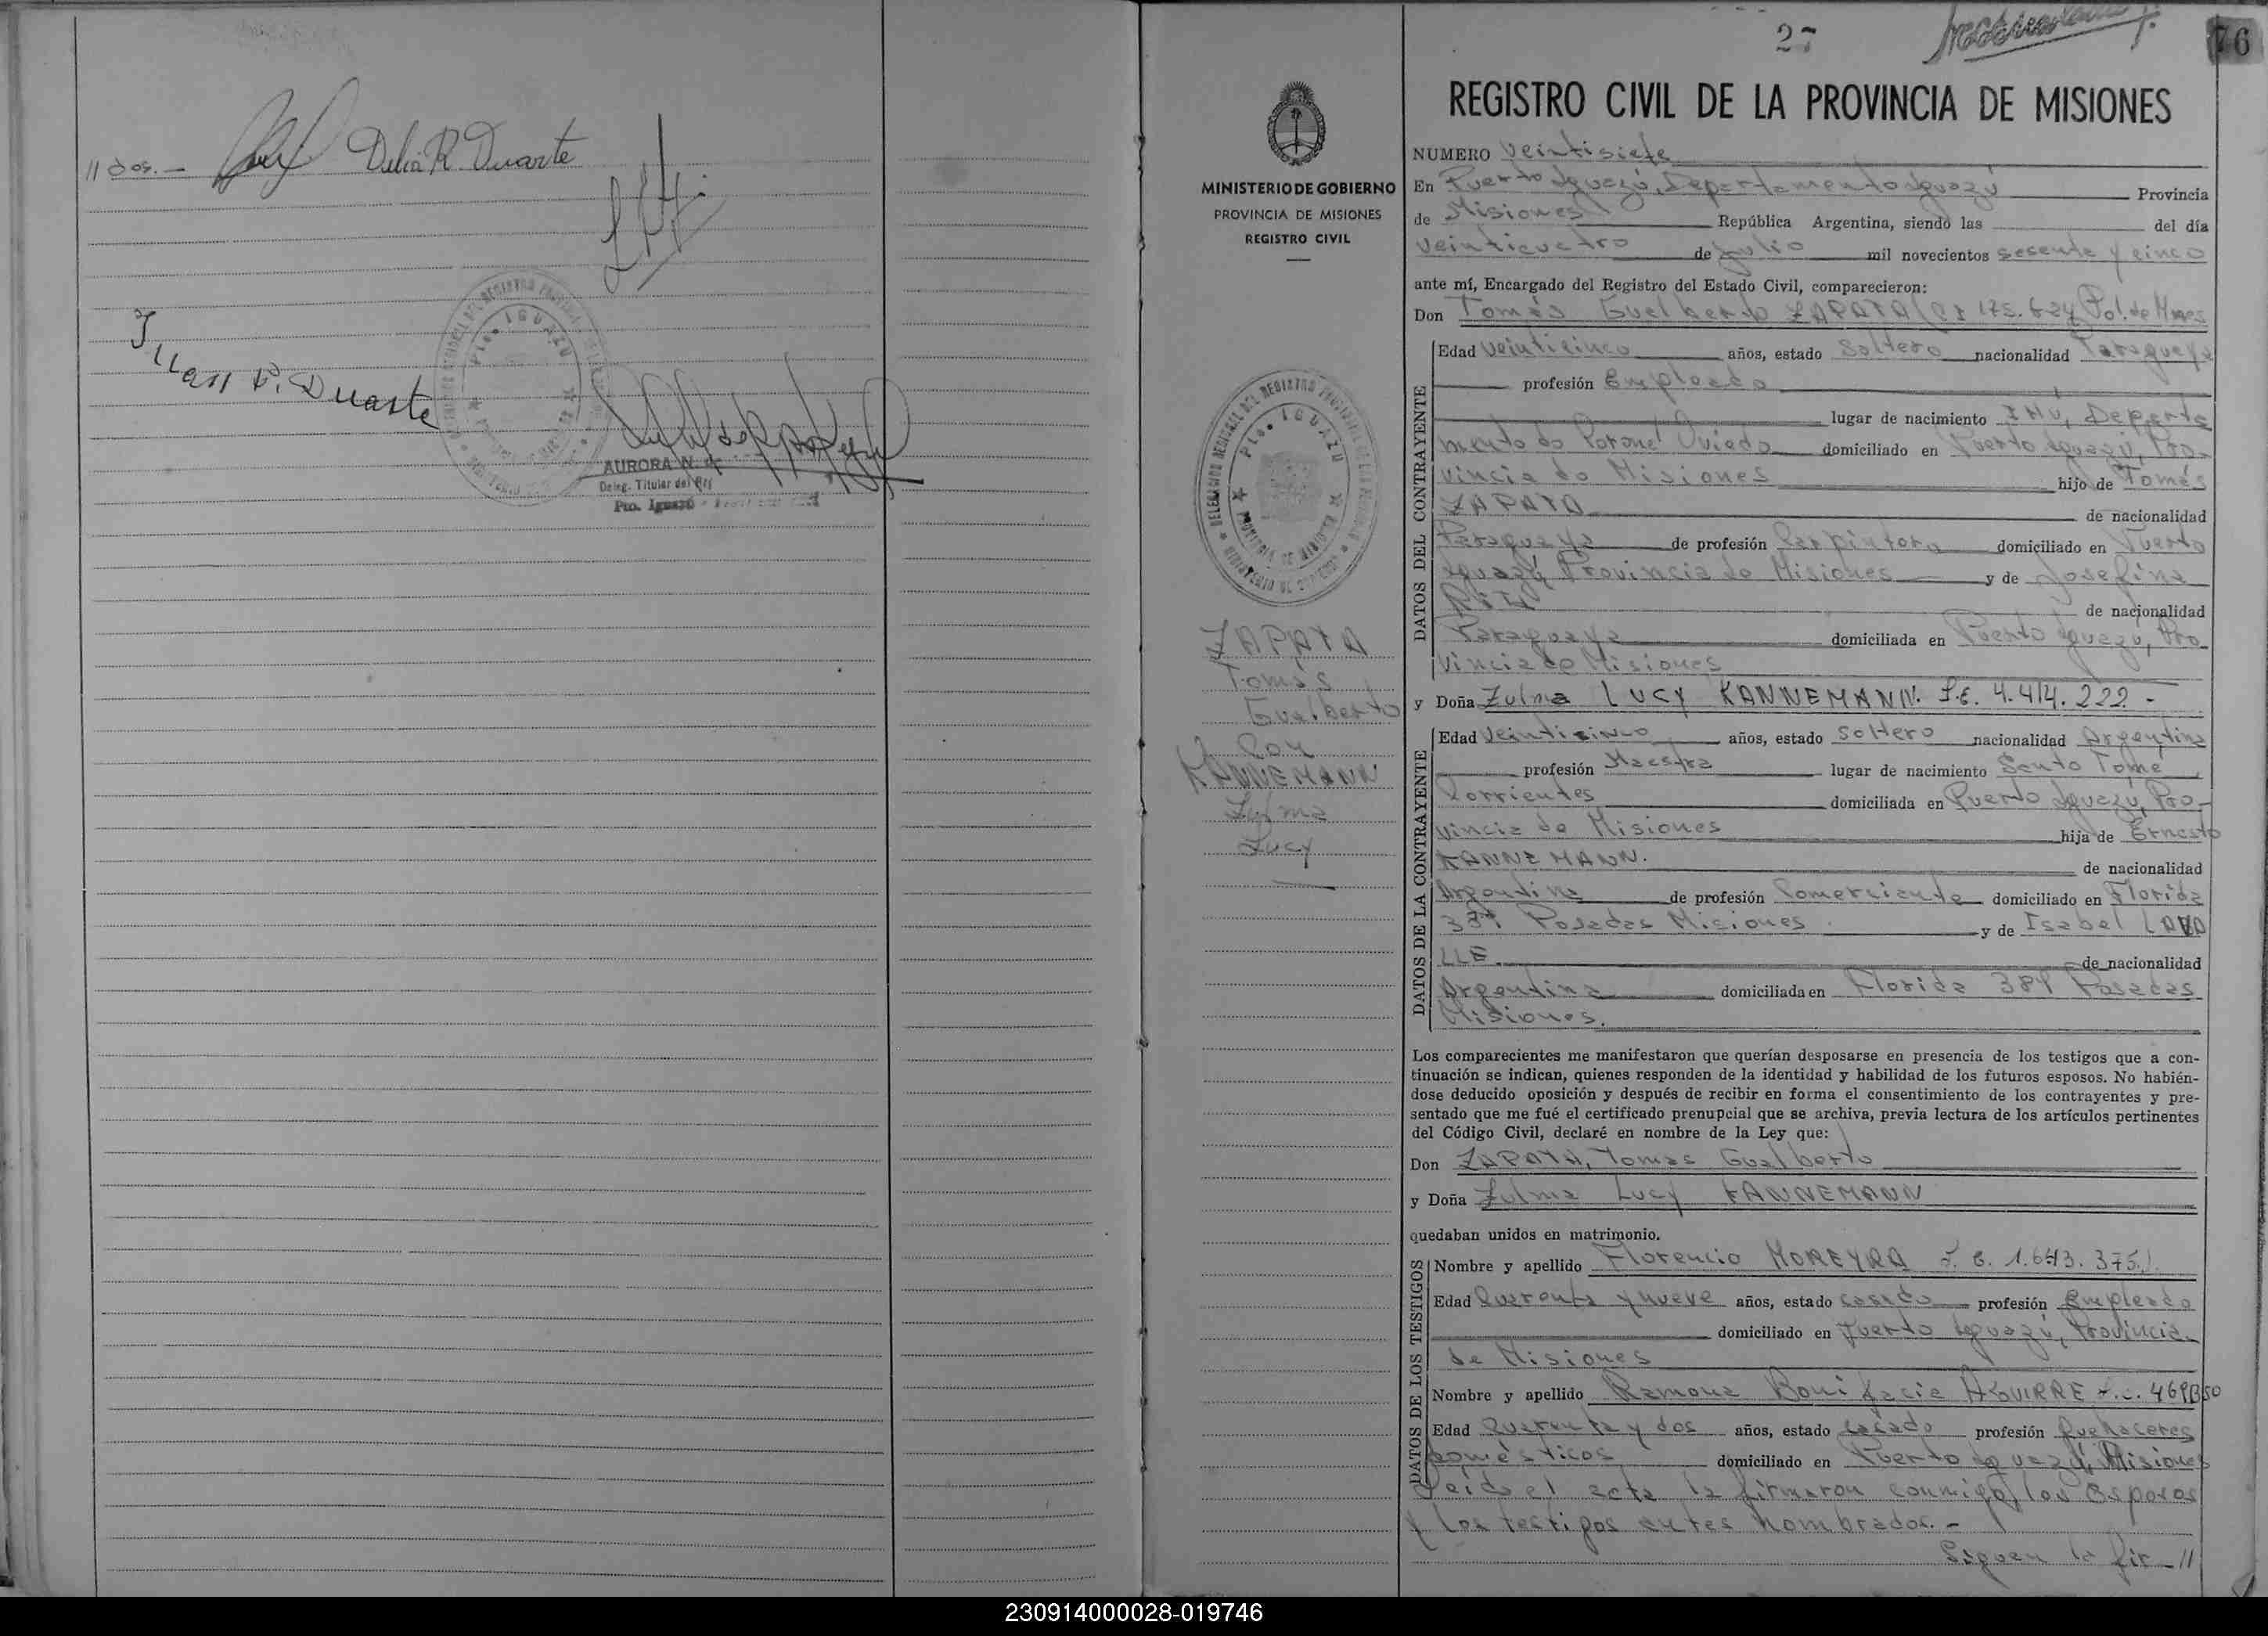 //dos.-
Delia R. Duarte
Juan P. Duarte
Pto. IGUAZU
AURORA N.
Deleg. Titular del
Pto. Iguazú
27
76
REGISTRO CIVIL DE LA PROVINCIA DE MISIONES
MINISTERIO DE GOBIERNO
PROVINCIA DE MISIONES
REGISTRO CIVIL
Pto. IGUAZU
ZAPATA
Tomás
Gualberto
Con
KANNEMANN
Zulma
Lucy
NUMERO Veintisiete
En Puerto Iguazú, Departamento Iguazú Provincia
de Misiones República Argentina, siendo las del día
veinticuatro de Julio mil novecientos sesenta y cinco
ante mí, Encargado del Registro del Estado Civil, comparecieron:
Don Tomás Gualberto ZAPATA (CI 175.624 Pol. de Mnes
DATOS DEL CONTRAYENTE
Edad Veinticinco años, estado Soltero nacionalidad Paraguaya
profesión Empleado
lugar de nacimiento IHÚ, Departa
mento do Coronel Oviedo domiciliado en Puerto Iguazú, Pro-
vincia do Misiones hijo de Tomás
ZAPATA de nacionalidad
Paraguaya de profesión Carpintero domiciliado en Puerto
Iguazú Provincia do Misiones y de Josefina
de nacionalidad
Paraguaya domiciliada en Puerto Iguazú, Pro
vincia do Misiones
y Doña Zulma LUCY KANNEMANN. L.C. 4.414.222.-
DATOS DE LA CONTRAYENTE
Edad Veinticinco años, estado Soltero nacionalidad Argentina
profesión Maestra lugar de nacimiento Santo Tomé
Corrientes domiciliada en Puerto Iguazú, Pro-
vincia do Misiones hija de Ernesto
KANNEMANN. de nacionalidad
Argentina de profesión Comerciante domiciliado en Florida
387 Posadas Misiones y de Isabel LAVA
LLE. de nacionalidad
Argentina domiciliada en Florida 387 Posadas
Misiones.
Los comparecientes me manifestaron que querían desposarse en presencia de los testigos que a con-
tinuación se indican, quienes responden de la identidad y habilidad de los futuros esposos. No habién-
dose deducido oposición y después de recibir en forma el consentimiento de los contrayentes y pre-
sentado que me fué el certificado prenupcial que se archiva, previa lectura de los artículos pertinentes
del Código Civil, declaré en nombre de la Ley que:
Don ZAPATA, Tomas Gualberto
y Doña Zulma Lucy KANNEMANN
quedaban unidos en matrimonio.
DATOS DE LOS TESTIGOS
Nombre y apellido Florencio MOREYRA 1.643.375.)
Edad Cuarenta y nueve años, estado casado profesión Empleado
domiciliado en Puerto Iguazú, Provincia
de Misiones
Nombre y apellido Ramona Bonifacia AGUIRRE L.C.
Edad Cuarenta y dos años, estado casado profesión Quehaceres
domésticos domiciliado en Puerto Iguazú, Misiones
Leida el acta la firmaron conmigo, los Esposos
y los testigos antes nombrados.-
Siguen la fir-//
230914000028-019746